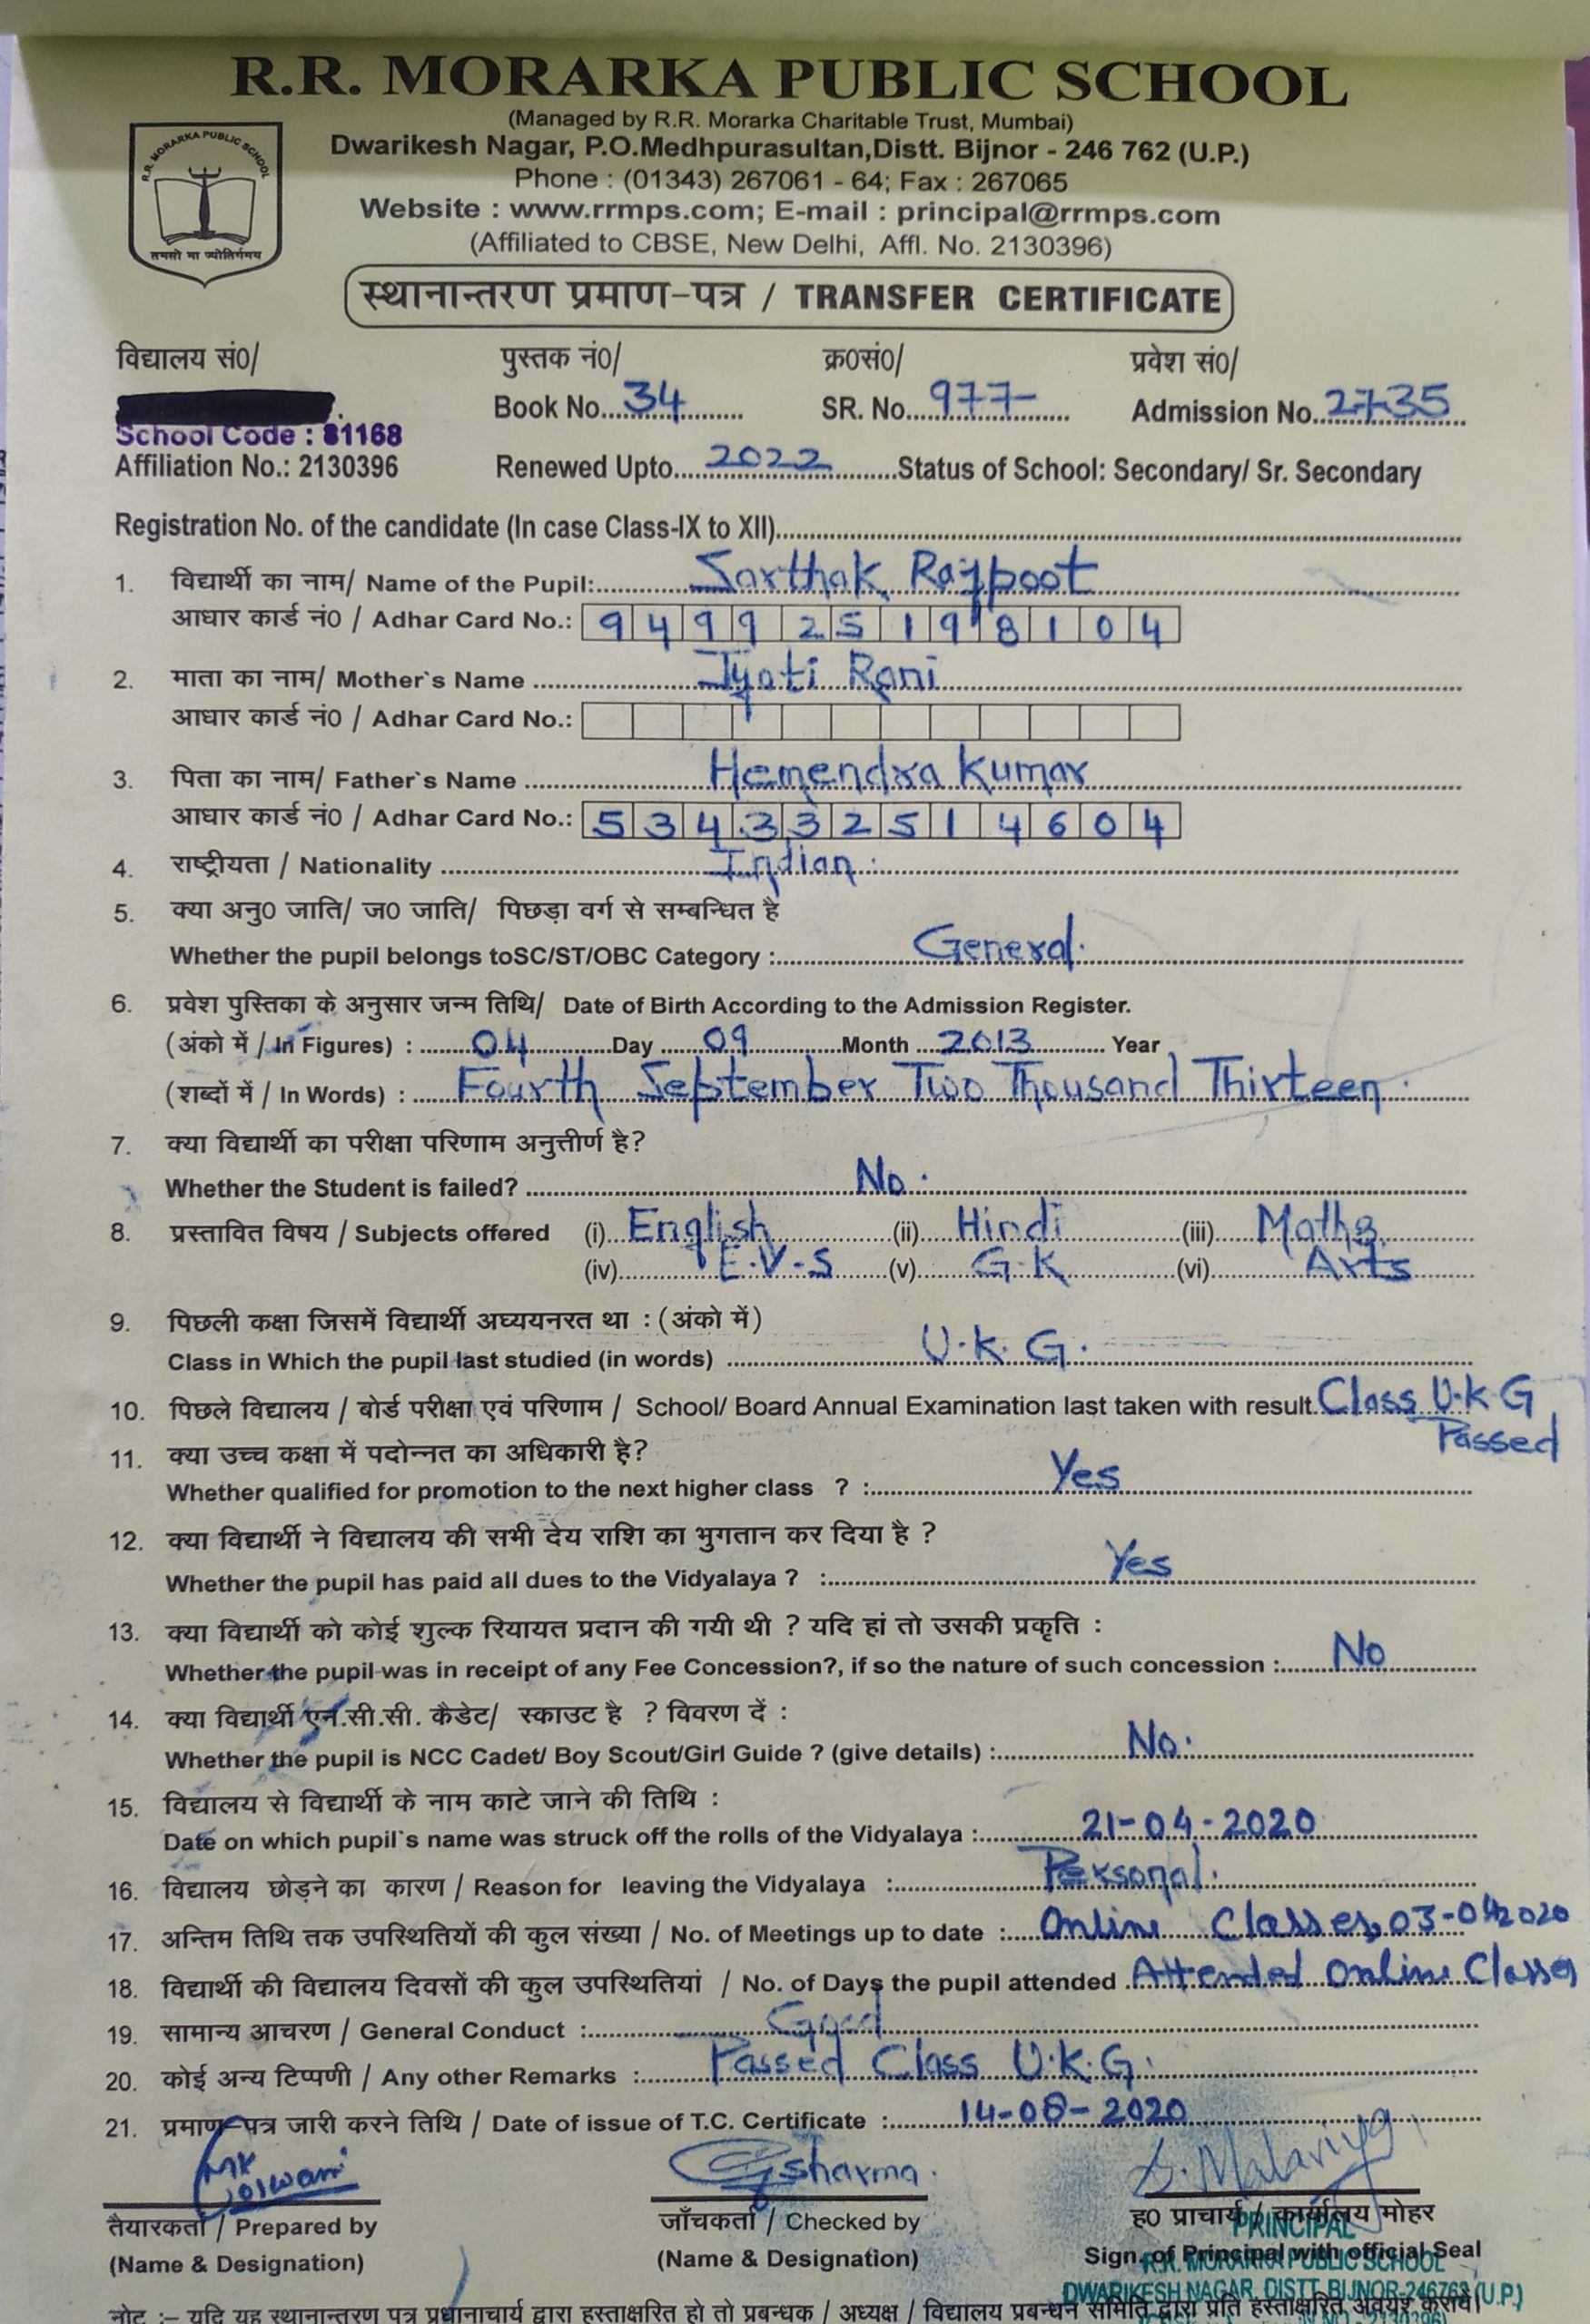 R.R. MORARKA PUBLIC SCHOOL
(Managed by R.R. Morarka Charitable Trust, Mumbai)
Dwarikesh Nagar, P.O.Medhpurasultan,Distt. Bijnor - 246 762 (U.P.)
Phone : (01343) 267061 - 64; Fax : 267065
Website : www.rrmps.com; E-mail : principal@rrmps.com
(Affiliated to CBSE, New Delhi, Affl. No. 2130396)
R.R. MORARKA PUBLIC SCHOOL
तमसो मा ज्योतिर्गमय
स्थानान्तरण प्रमाण-पत्र / TRANSFER CERTIFICATE
विद्यालय सं0/ पुस्तक नं0/ क्र0सं0/ प्रवेश सं0/
Book No. 34 SR. No. 977 Admission No. 2735
School Code : 81168
Affiliation No.: 2130396 Renewed Upto 2022 Status of School: Secondary/ Sr. Secondary
Registration No. of the candidate (In case Class-IX to XII)
1. विद्यार्थी का नाम/ Name of the Pupil: Sarthak Rajpoot
आधार कार्ड नं0 / Adhar Card No.: 9 4 9 9 2 5 1 9 8 1 0 4
2. माता का नाम/ Mother`s Name Jyoti Rani
आधार कार्ड नं0 / Adhar Card No.:
3. पिता का नाम/ Father`s Name Hemendra Kumar
आधार कार्ड नं0 / Adhar Card No.: 5 3 4 3 3 2 5 1 4 6 0 4
4. राष्ट्रीयता / Nationality Indian
5. क्या अनु0 जाति/ ज0 जाति/ पिछड़ा वर्ग से सम्बन्धित है
Whether the pupil belongs toSC/ST/OBC Category : General
6. प्रवेश पुस्तिका के अनुसार जन्म तिथि/ Date of Birth According to the Admission Register.
(अंको में / In Figures) : 04 Day 09 Month 2013 Year
(शब्दों में / In Words) : Fourth September Two Thousand Thirteen
7. क्या विद्यार्थी का परीक्षा परिणाम अनुत्तीर्ण है?
Whether the Student is failed? No
8. प्रस्तावित विषय / Subjects offered (i) English (ii) Hindi (iii) Maths
(iv) E.V.S (v) G.K (vi) Arts
9. पिछली कक्षा जिसमें विद्यार्थी अघ्ययनरत था : (अंको में)
Class in Which the pupil last studied (in words) U.K.G.
10. पिछले विद्यालय / बोर्ड परीक्षा एवं परिणाम / School/ Board Annual Examination last taken with result Class U.K.G
Passed
11. क्या उच्च कक्षा में पदोन्नत का अधिकारी है?
Whether qualified for promotion to the next higher class ? : Yes
12. क्या विद्यार्थी ने विद्यालय की सभी देय राशि का भुगतान कर दिया है ?
Whether the pupil has paid all dues to the Vidyalaya ? : Yes
13. क्या विद्यार्थी को कोई शुल्क रियायत प्रदान की गयी थी ? यदि हां तो उसकी प्रकृति :
Whether the pupil was in receipt of any Fee Concession?, if so the nature of such concession : No
14. क्या विद्यार्थी एन.सी.सी. कैडेट/ स्काउट है ? विवरण दें :
Whether the pupil is NCC Cadet/ Boy Scout/Girl Guide ? (give details) : No
15. विद्यालय से विद्यार्थी के नाम काटे जाने की तिथि :
Date on which pupil`s name was struck off the rolls of the Vidyalaya : 21-04-2020
16. विद्यालय छोड़ने का कारण / Reason for leaving the Vidyalaya : Personal
17. अन्तिम तिथि तक उपस्थितियों की कुल संख्या / No. of Meetings up to date : Online Classes, 03-04-2020
18. विद्यार्थी की विद्यालय दिवसों की कुल उपस्थितियां / No. of Days the pupil attended Attended Online Classes
19. सामान्य आचरण / General Conduct : Good
20. कोई अन्य टिप्पणी / Any other Remarks : Passed Class U.K.G.
21. प्रमाण-पत्र जारी करने तिथि / Date of issue of T.C. Certificate : 14-08-2020
Goswami Gsharma. S. Malaviya
तैयारकर्ता / Prepared by जाँचकर्ता / Checked by ह0 प्राचार्य / कार्यालय मोहर
PRINCIPAL
(Name & Designation) (Name & Designation) Sign. of Principal with official Seal
R.R. MORARKA PUBLIC SCHOOL
DWARIKESH NAGAR, DISTT. BIJNOR-246763 (U.P.)
नोट :– यदि यह स्थानान्तरण पत्र प्रधानाचार्य द्वारा हस्ताक्षरित हो तो प्रबन्धक / अध्यक्ष / विद्यालय प्रबन्धन समिति द्वारा प्रति हस्ताक्षरित अवयश् करायें।